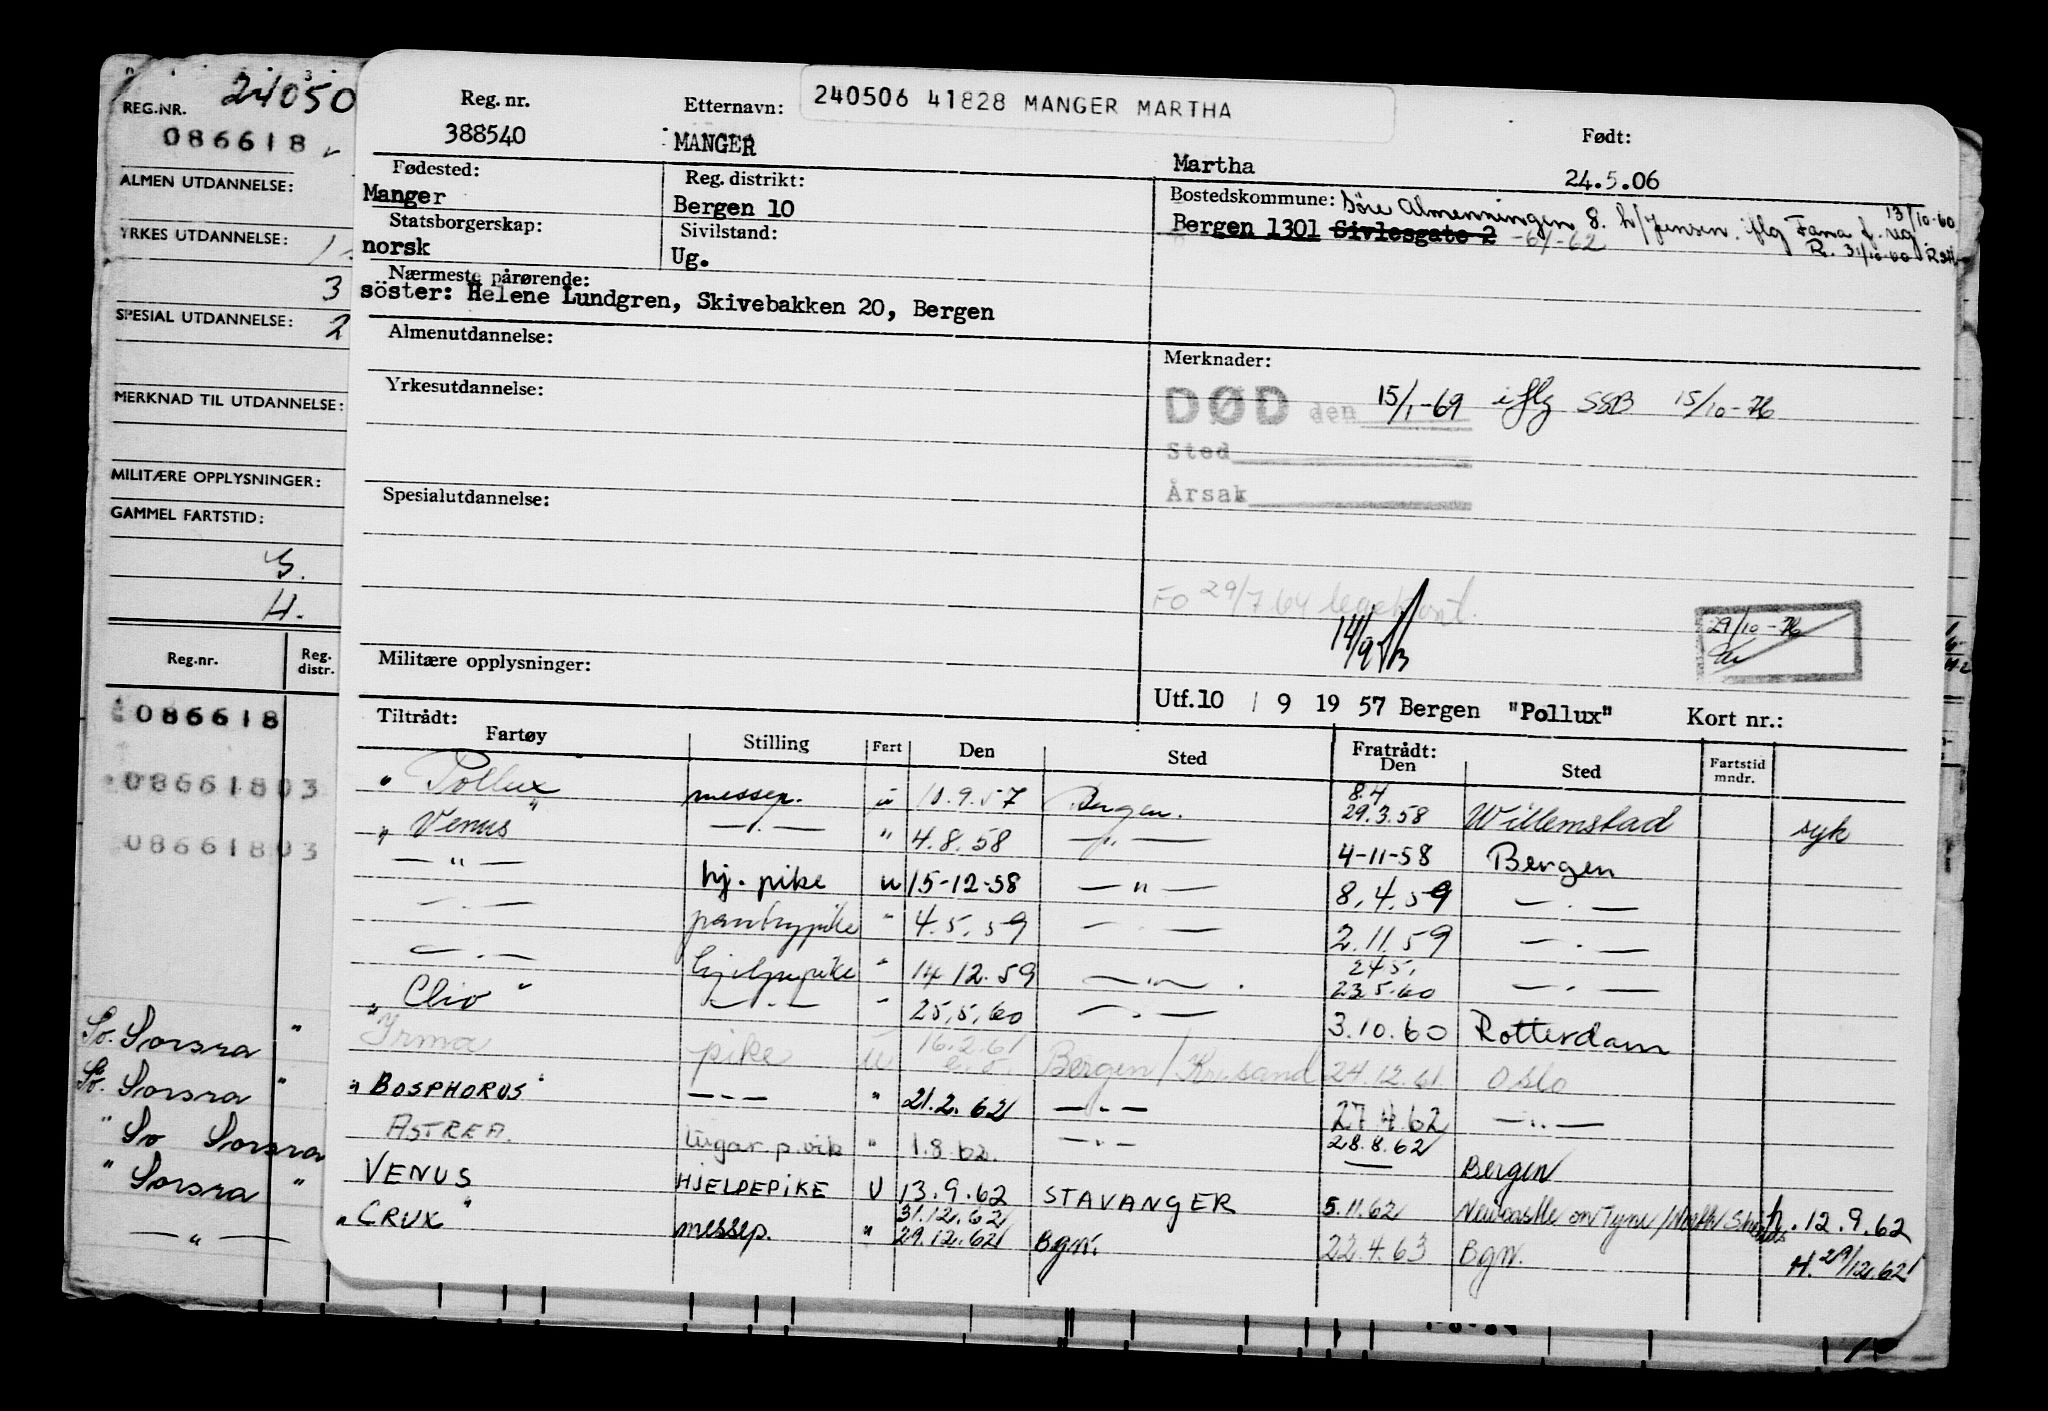 24050
REG.NR.
086618
ALMEN UTDANNELSE:
YRKES UTDANNELSE:
3
SPESIAL UTDANNELSE: 2
MERKNAD TIL UTDANNELSE:
MILITÆRE OPPLYSNINGER:
GAMMEL FARTSTID:
Reg.nr. Reg. distr.
086618
08661803
08661803
So. Sorsra "
So. Sorsra "
" So Sorsra
" Sorsra "
— " —
240506 41828 MANGER MARTHA
Reg. nr. Etternavn: Født:
388540 MANGER Martha 24.5.06
Fødested: Reg. distrikt: Bostedskommune: Söre Almenningen 8. h/Jensen. iflg Fana f. 13/10-60
Manger Bergen 10 Bergen 1301 Sivlesgate 2 -61-62 R. 31/10-60
Statsborgerskap: Sivilstand:
norsk Ug.
Nærmeste pårørende:
söster: Helene Lundgren, Skivebakken 20, Bergen
Almenutdannelse: Merknader:
DØD den 15/1-69 iflg SSB 15/10-76
Yrkesutdannelse:
Sted
Årsak
Spesialutdannelse:
FO 29/7 64 legekont.
14/9
29/10-76
Militære opplysninger:
Utf.10 / 9 19 57 Bergen "Pollux" Kort nr.:
Tiltrådt: Fratrådt:
Fartøy Stilling Fart Den Sted Den Sted Fartstid mndr.
" Pollux " messep. u 10.9.57 Bergen. 8.4 29.3.58 Willemstad syk
" Venus — . — " 4.8.58 — " — 4-11-58 Bergen
— " — hj. pike u 15-12-58 — " — 8.4.59 — . —
— . — pantrypike " 4.5.59 — . — 2.11.59 — . —
— . — hjelpepike " 14.12.59 — " — . 24.5. 23.5.60 — . —
" Clio " — . — " 25.5.60 — . — 3.10.60 Rotterdam
Irma pike u 16.2.61 Bergen/Krisand 24.12.61 Oslo
" BOSPHORUS " — . — " 21.2.62 — . — 27.4.62 — .. —
ASTREA. lugar.p.vik " 1.8.62. — .. — 28.8.62 — Bergen
VENUS HJELPEPIKE U 13.9.62 STAVANGER 5.11.62 Newcastle on Tyne/North Shields h. 12.9.62
" CRUX " messep. " 31.12.62 29.12.62 Bgn. 22.4.63 Bgn. H. 29/12.62